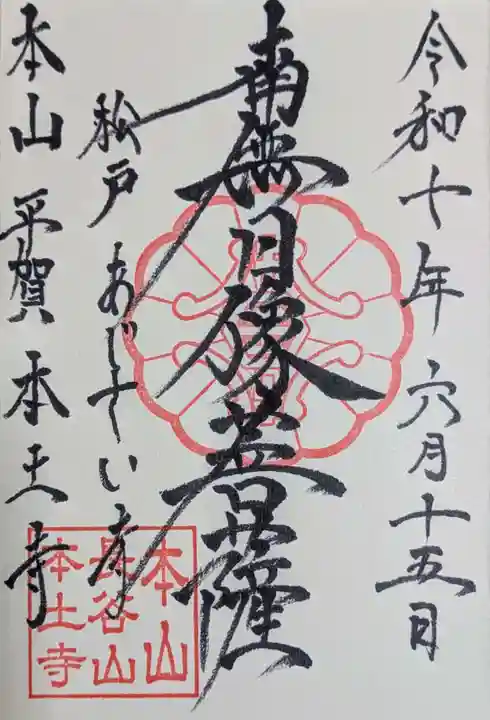 令和七年六月十五日
南無日像菩薩
松戸 あじさい寺
本山 平賀 本土寺
本山
長谷山
本土寺